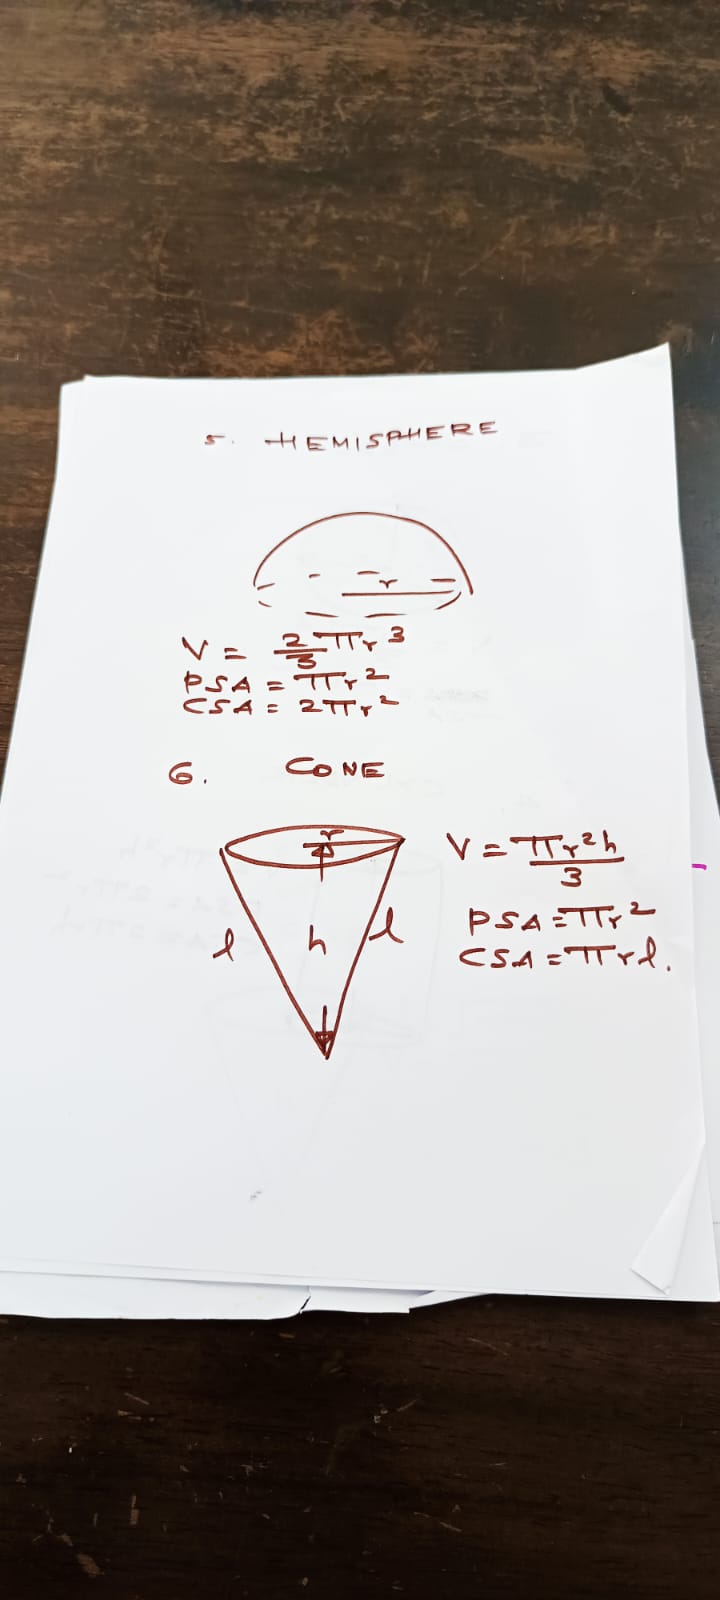 5. HEMISPHERE
r
V = 2/3 πr³
PSA = πr²
CSA = 2πr²
6. CONE
r
l h l
V = πr²h/3
PSA = πr²
CSA = πrl.